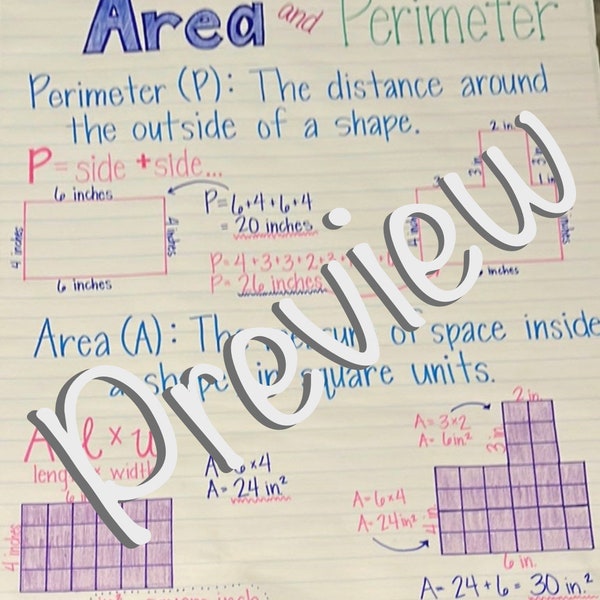 Area and Perimeter
Perimeter (P): The distance around
the outside of a shape.
P = side + side...
6 inches
4 inches
4 inches
6 inches
P = 6+4+6+4
= 20 inches
P = 4+3+3+2+
P = 26 inches
2 in.
3 in
3 in
1 in
4 in
inches
inches
Preview
Area (A): The of space inside
a shape in square units.
A l x
length x width
4 inches
A 6x4
A = 24 in²
A = 3x2
A = 6in²
2 in.
3 in
A = 6x4
A = 24in²
4 in
6 in.
A = 24 + 6 = 30 in.²